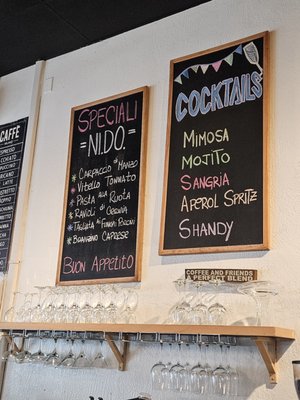 CAFFÈ
SPECIALI
= NIDO. =
* CARPACCIO di MANZO
* VITELLO TONNATO
* PASTA alla RUOTA
* RAVIOLI di
* TAGLIATA
* BRANZINO CAPRESE
BUON APPETITO
COCKTAILS
MIMOSA
MOJITO
SANGRIA
APEROL SPRITZ
SHANDY
COFFEE AND FRIENDS
A PERFECT BLEND